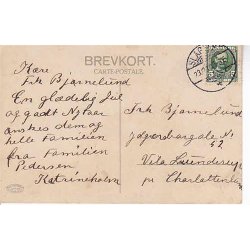 BREVKORT.
CARTE-POSTALE.
Kære
Frk Bjørnelund
En glædelig Jul
og godt Nytaar
ønskes dem og
hele Familien
fra Familien
Pedersen
Katrineholm
Frk Bjørnelund
No
52
Villa
pr Charlottenlund